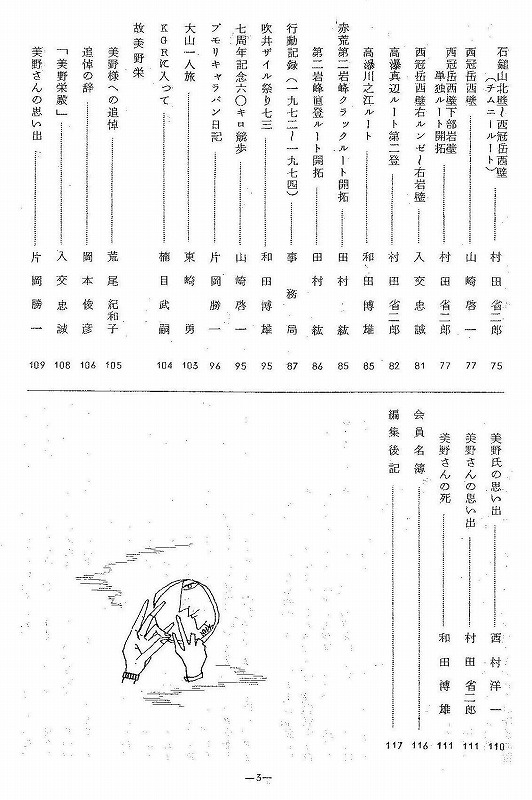 石鎚山北壁〜西冠岳西壁
(チムニールート) 村田省二郎 75
西冠岳西壁 山崎啓一 77
西冠岳西壁下部岩壁
単独ルート開拓 村田省二郎 77
西冠岳西壁右ルンゼ〜右岩壁 入交忠誠 81
高瀑真辺ルート第二登 村田省二郎 82
高瀑川之江ルート 和田博雄 85
赤荒第二岩峰クラックルート開拓 田村紘 85
第二岩峰直登ルート開拓 田村紘 86
行動記録(一九七二〜一九七四) 事務局 87
吹井ザイル祭り七三 和田博雄 95
七周年記念六〇キロ縦歩 山崎啓一 95
プモリキャラバン日記 片岡勝一 96
大山一人旅 東崎勇 103
KGRに入つて 楠目武嗣 104
故美野栄
美野様への追悼 荒尾紀和子 105
追悼の辞 岡本俊彦 106
「美野栄殿」 入交忠誠 108
美野さんの思い出 片岡勝一 109
美野氏の思い出 西村洋一 110
美野さんの思い出 村田省二郎 111
美野さんの死 和田博雄 111
会員名簿 116
編集後記 117
—3—